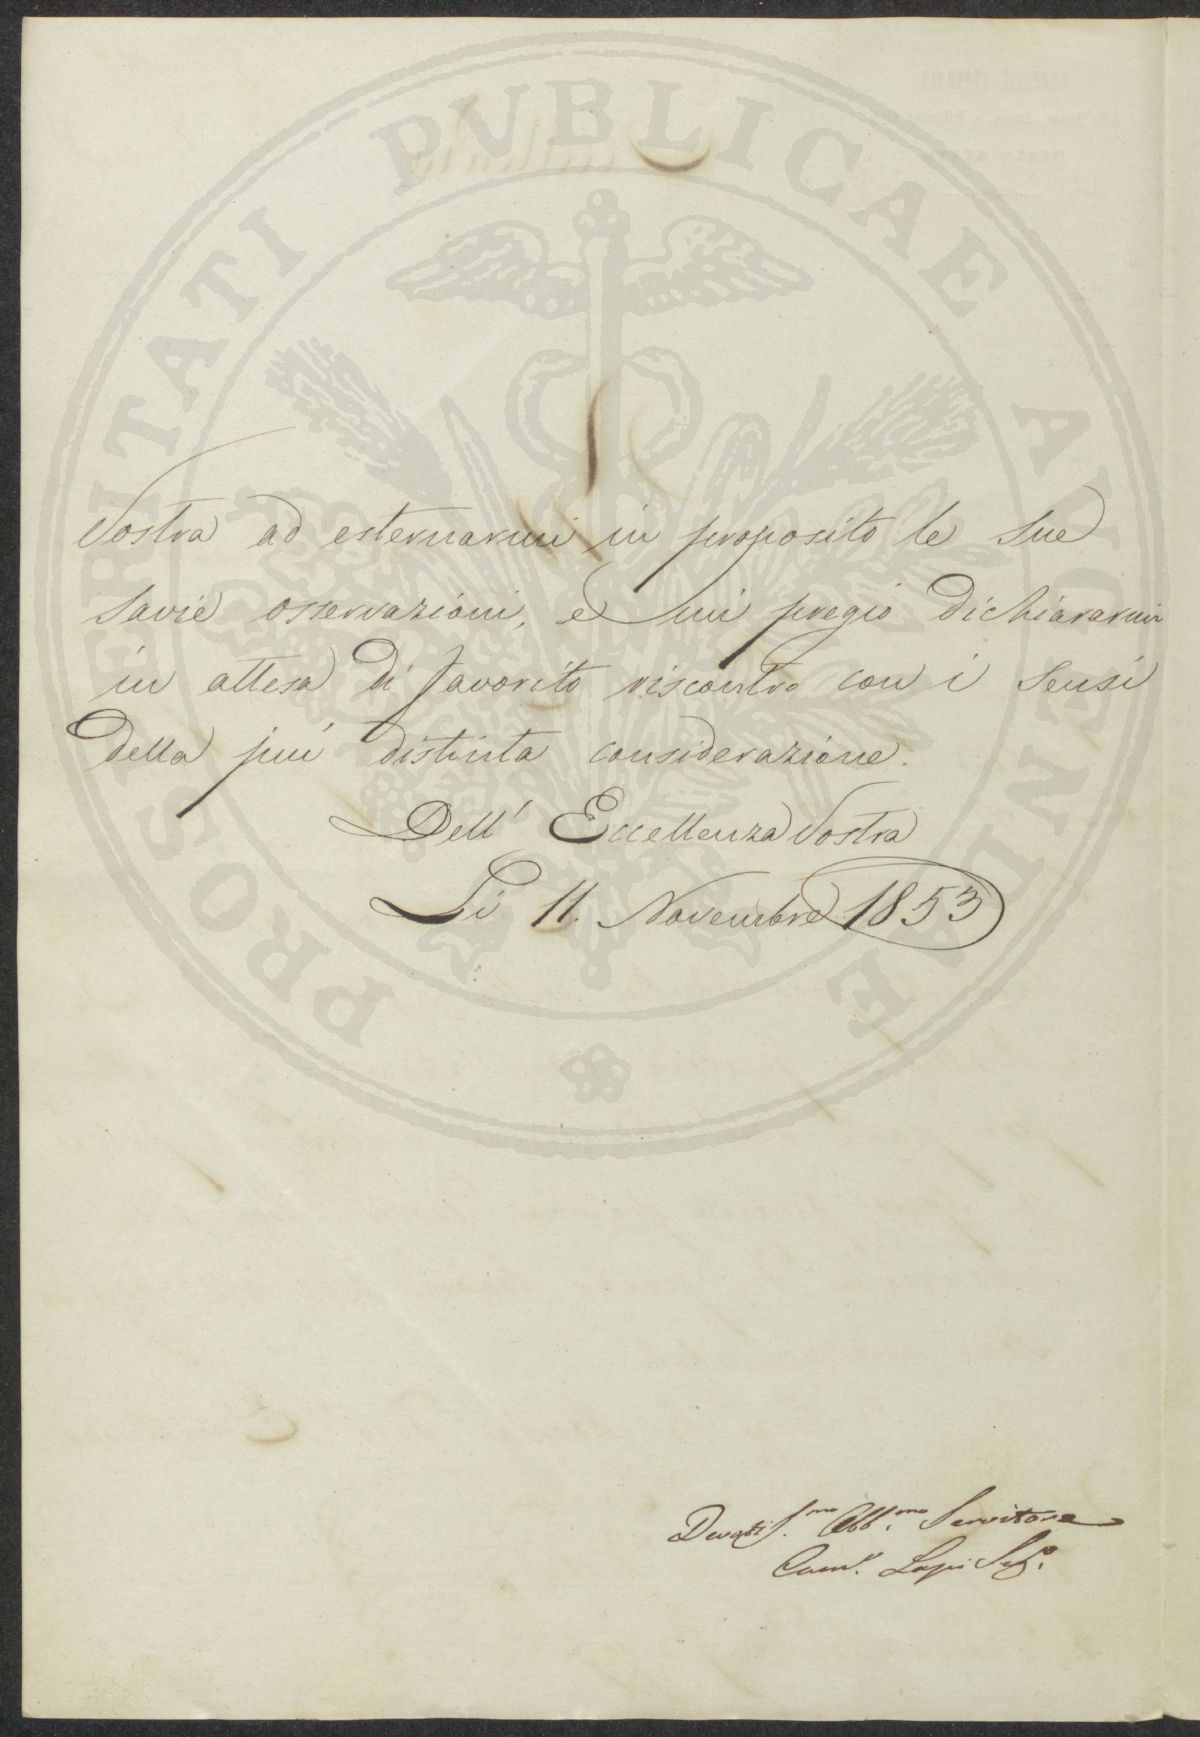 Vostra ad esternarmi in proposito le Sue
Savie osservazioni, e mi pregio dichiararmi
in attesa di favorito riscontro con i sensi
della più distinta considerazione.
Dell' Eccellenza Vostra
Li 11. Novembre 1853
Devotis.mo Obb.mo Servitore
PROSPERITATI PVBLICAE AVGENDAE